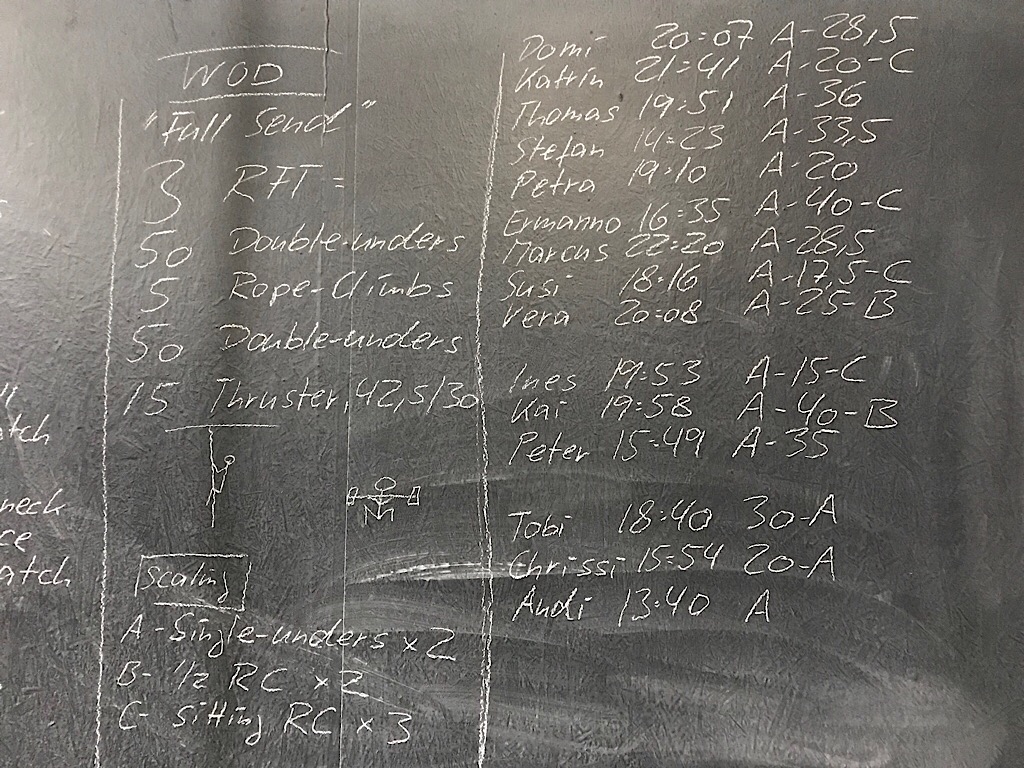 WOD
"Full Send"
3 RFT =
50 Double-unders
5 Rope-Climbs
50 Double-unders
15 Thruster, 42,5/30
scaling
A-Single-unders x 2
B- 1/2 RC x 2
C- sitting RC x 3
Domi 20:07 A-28,5
Katrin 21:41 A-20-C
Thomas 19:51 A-36
Stefan 14:23 A-33,5
Petra 19:10 A-20
Ermanno 16:35 A-40-C
Marcus 22:20 A-28,5
Susi 18:16 A-17,5-C
Vera 20:08 A-25-B
Ines 19:53 A-15-C
Kai 19:58 A-40-B
Peter 15:49 A-35
Tobi 18:40 30-A
Chrissi 15:54 20-A
Andi 13:40 A